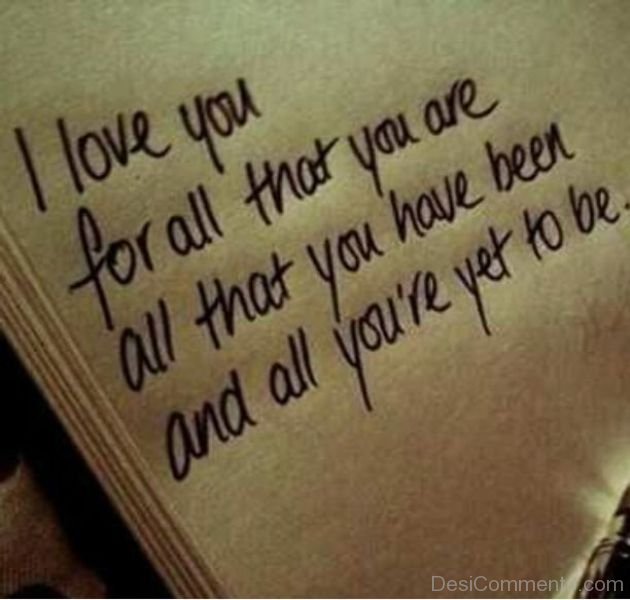 I love you
for all that you are
all that you have been
and all you're yet to be.
DesiComments.com